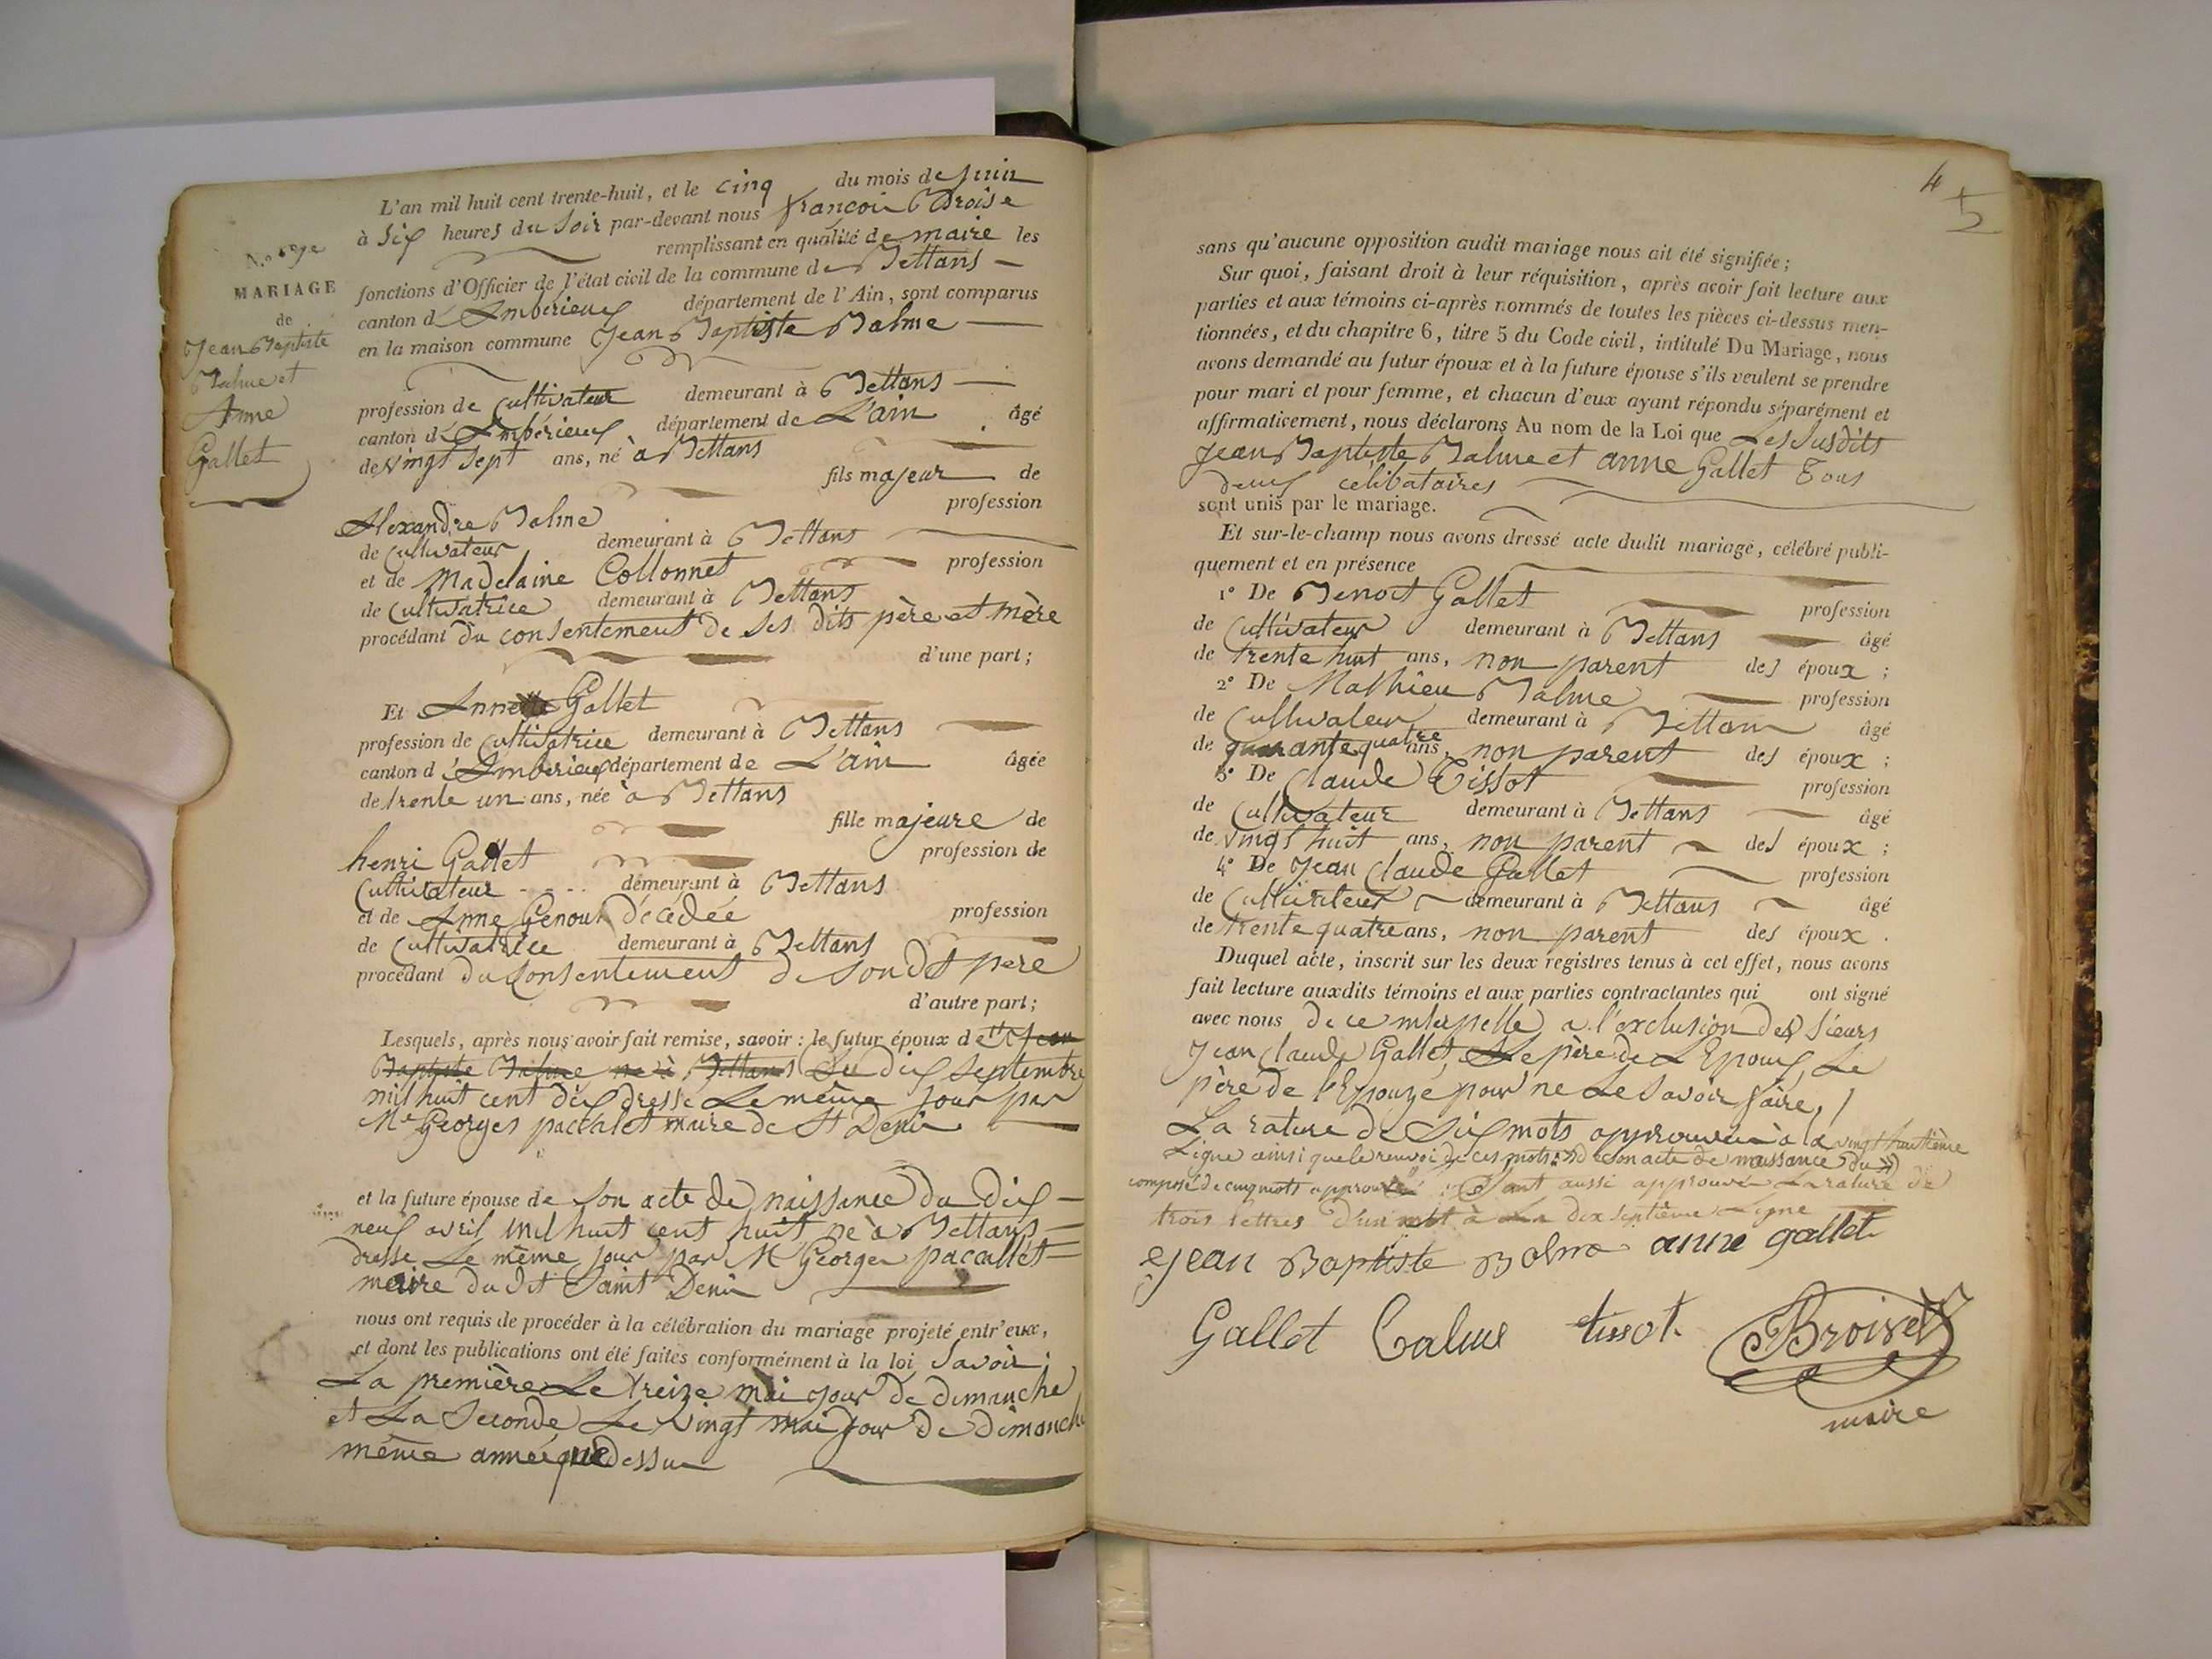 L'an mil huit cent trente-huit, et le cinq du mois de juin
à six heures du soir par-devant nous françois Broise
remplissant en qualité de maire les
fonctions d'Officier de l'état civil de la commune de Bettans
canton d'Ambérieux département de l'Ain, sont comparus
en la maison commune Jean Baptiste Balme
profession de Cultivateur demeurant à Bettans
canton d'Ambérieux département de L'ain âgé
de vingt sept ans, né à Bettans
fils majeur de
Alexandre Balme profession
de Cultivateur demeurant à Bettans
et de Madelaine Collonnet profession
de Cultivatrice demeurant à Bettans
procédant du consentement de ses dits père et mère
d'une part ;
Et Anne Gallet
profession de Cultivatrice demeurant à Bettans
canton d'Ambérieux département de L'ain âgée
de trente un ans, née à Bettans
fille majeure de
henri Gallet profession de
Cultivateur demeurant à Bettans
et de Anne Genoux décédée profession
de Cultivatrice demeurant à Bettans
procédant du Consentement de son dit père
d'autre part ;
Lesquels, après nous avoir fait remise, savoir : le futur époux de Jean
Baptiste Balme né à Bettans Du dix septembre
mil huit cent dix dressé Le même jour par
Mr Georges paccalet maire de St Denis
et la future épouse de son acte de naissance du dix
neuf avril mil huit cent huit né à Bettans
dressé Le même jour par Mr Georges pacallet
maire du dit Saint Denis
nous ont requis de procéder à la célébration du mariage projeté entr'eux,
et dont les publications ont été faites conformément à la loi Savoir :
La première Le treize mai jour de dimanche
et La Seconde Le vingt mai jour de dimanche
même année que dessus
MARIAGE
de
Jean Baptiste
Balme et
Anne
Gallet
4
sans qu'aucune opposition audit mariage nous ait été signifiée ;
Sur quoi, faisant droit à leur réquisition, après avoir fait lecture aux
parties et aux témoins ci-après nommés de toutes les pièces ci-dessus men-
tionnées, et du chapitre 6, titre 5 du Code civil, intitulé Du Mariage, nous
avons demandé au futur époux et à la future épouse s'ils veulent se prendre
pour mari et pour femme, et chacun d'eux ayant répondu séparément et
affirmativement, nous déclarons Au nom de la Loi que Les Susdits
Jean Baptiste Balme et anne Gallet Tous
deux célibataires
sont unis par le mariage.
Et sur-le-champ nous avons dressé acte dudit mariage, célébré publi-
quement et en présence
1° De Benoit Gallet profession
de Cultivateur demeurant à Bettans âgé
de trente huit ans, non parent des époux ;
2° De Mathieu Balme profession
de Cultivateur demeurant à Bettans âgé
de quarante quatre ans, non parent des époux ;
3° De Claude Tissot profession
de Cultivateur demeurant à Bettans âgé
de vingt huit ans, non parent des époux ;
4° De Jean Claude Gallet profession
de Cultivateur demeurant à Bettans âgé
de trente quatre ans, non parent des époux.
Duquel acte, inscrit sur les deux registres tenus à cet effet, nous avons
fait lecture auxdits témoins et aux parties contractantes qui ont signé
avec nous de ce interpellé a l'exclusion des Sieurs
Jean Claude Gallet, Le père de L'Epoux, Le
père de l'Epouze pour ne Le Savoir faire,
La rature de Six mots approuvée à la vingt huitième
Ligne ainsi que le renvoi de ces mots : de son acte de naissance du
composé de cinq mots approuvé aussi approuvé La rature de
trois lettres d'un mot à La dix septième Ligne
Jean Baptiste Balme anne gallet
Gallet Balme tissot Broise
maire